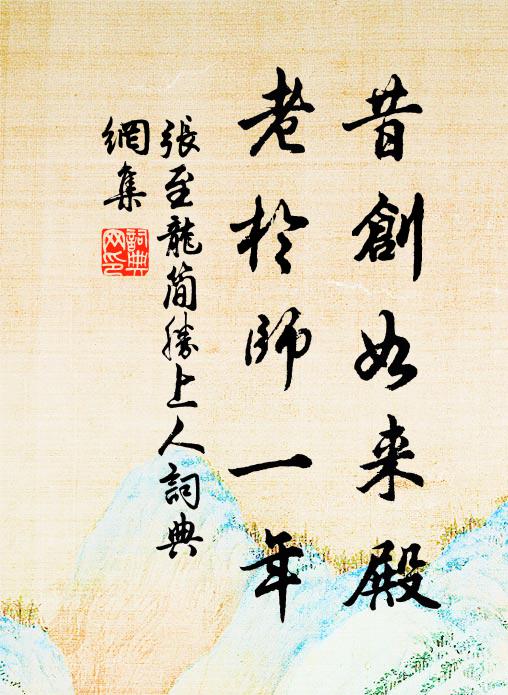 昔創如来殿
老於師一年
張至龍簡勝上人詞典
網集
詞典
网印